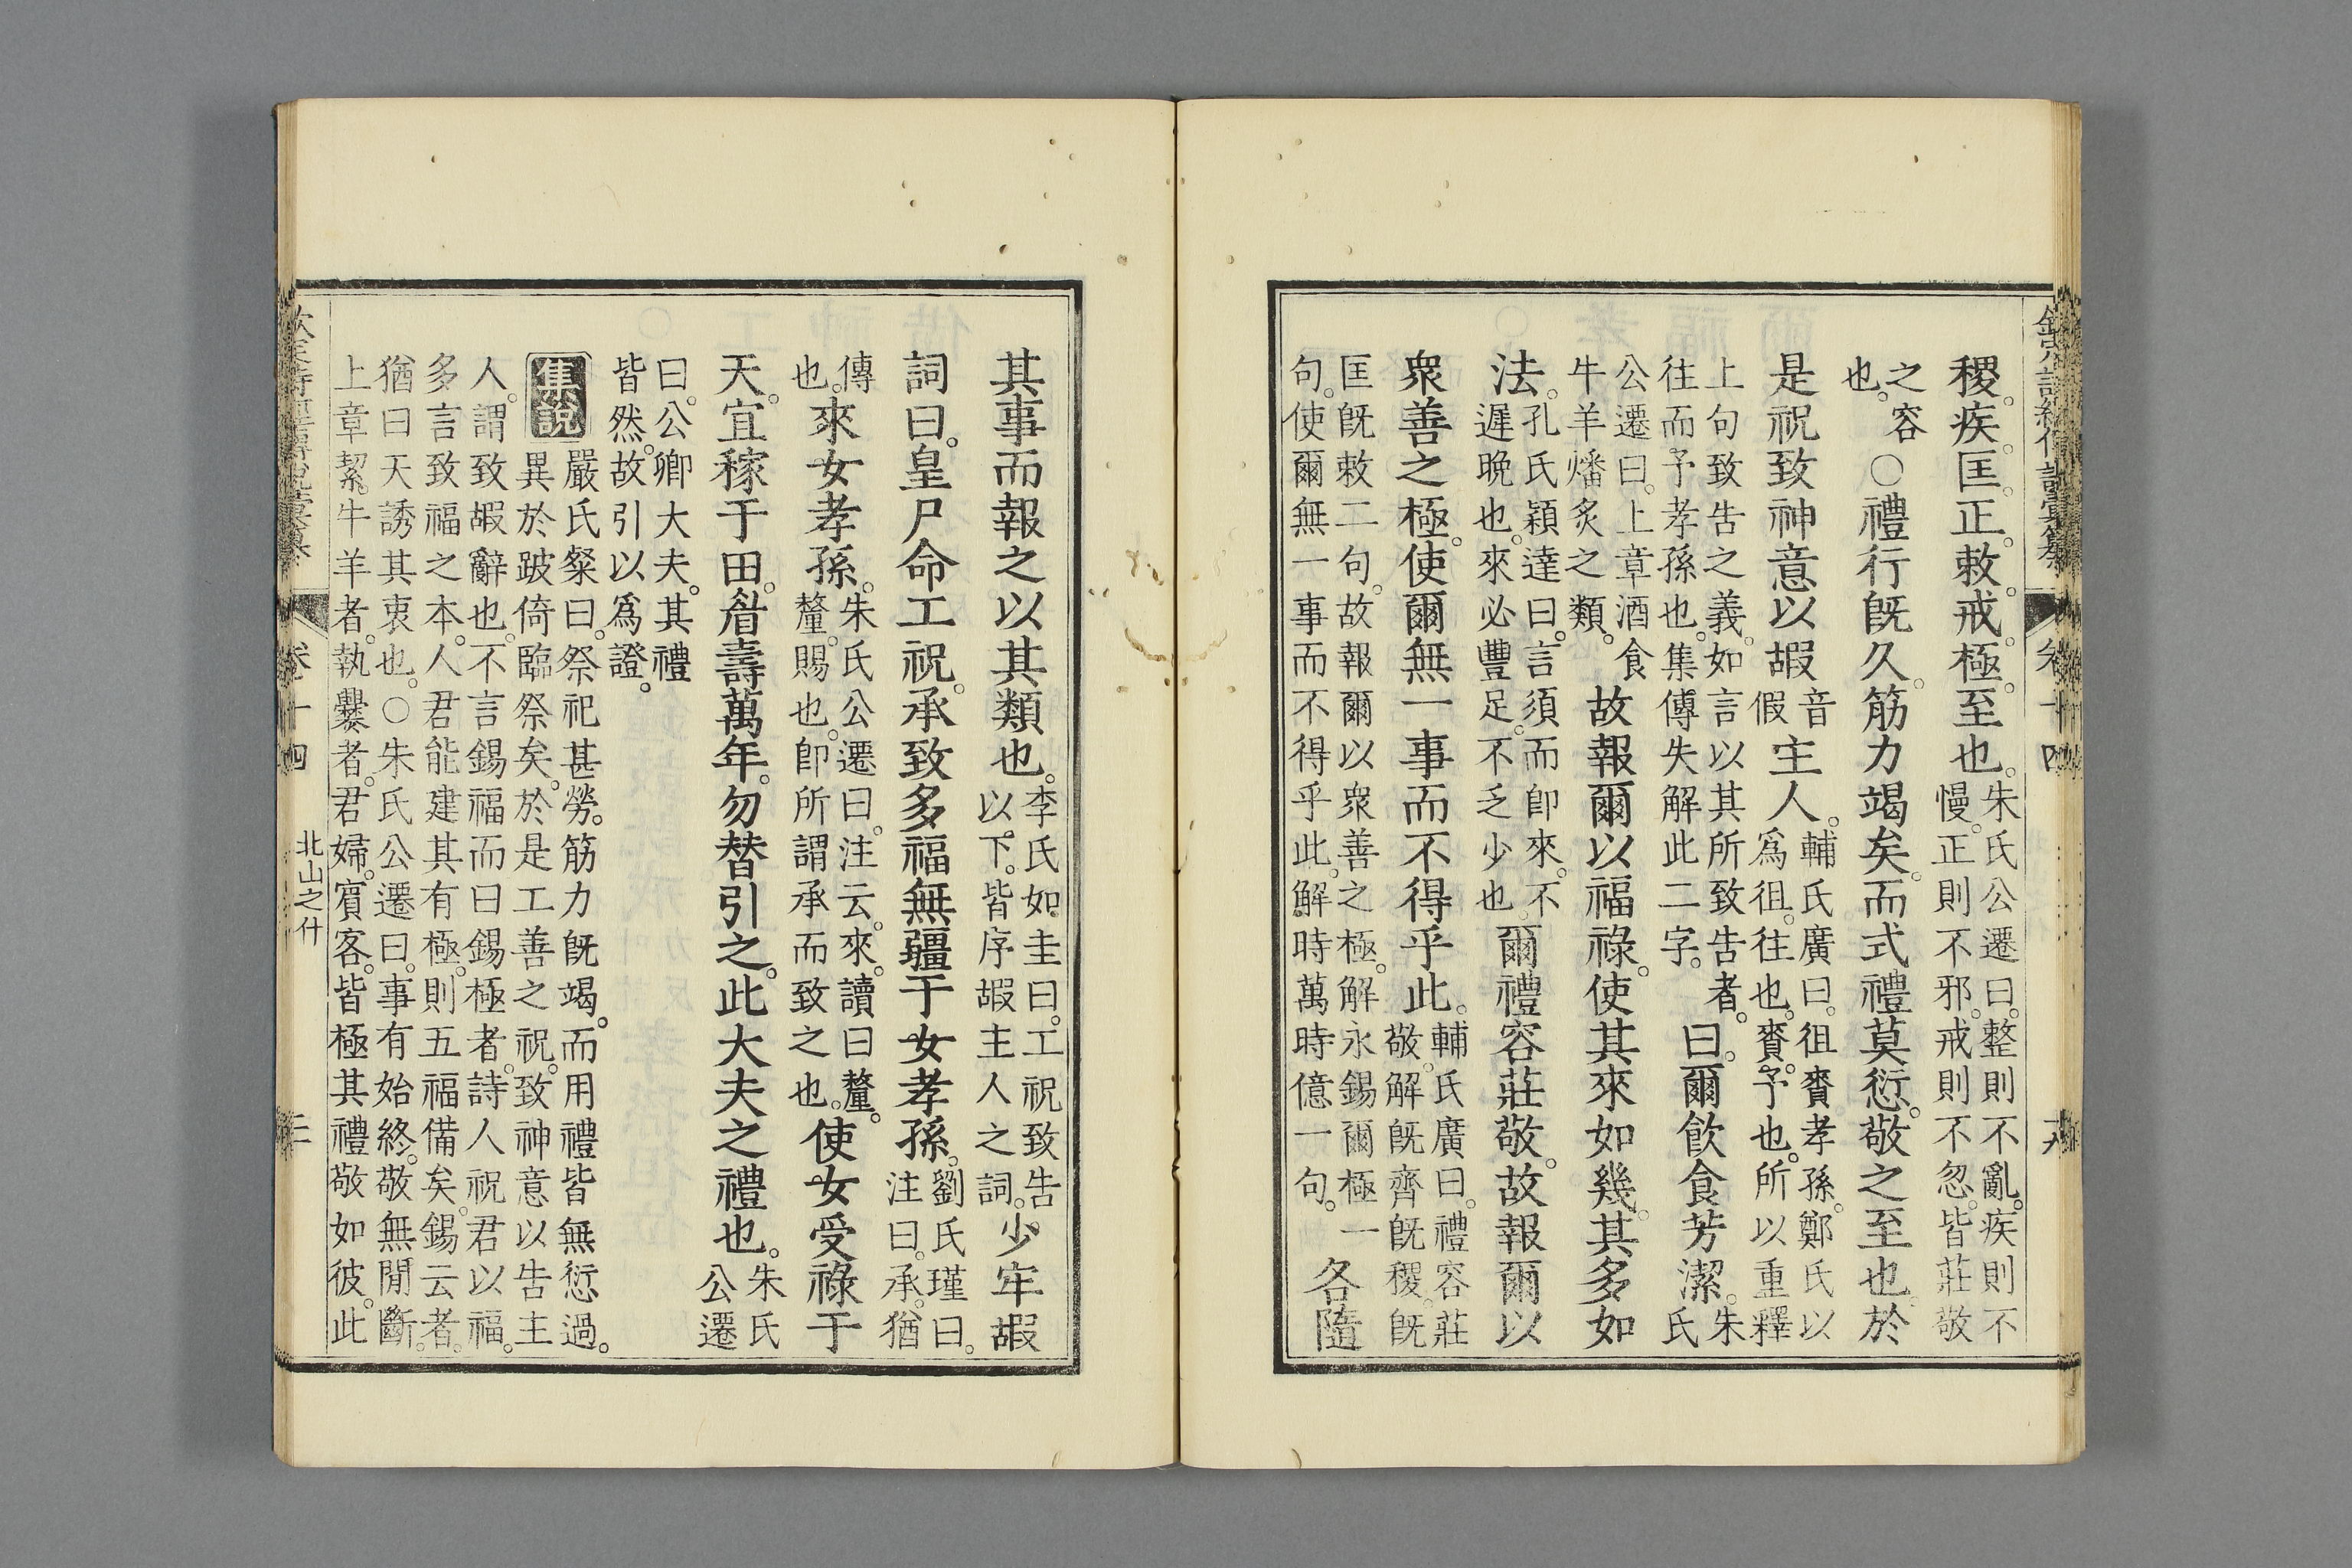 欽定詩經傳說彙纂 卷十四
稷疾匡正敕戒極至也朱氏公遷曰整則不亂疾則不
慢正則不邪戒則不忽皆莊敬
之容
也○禮行旣久筋力竭矣而式禮莫愆敬之至也於
是祝致神意以嘏音
假主人輔氏廣曰徂賚孝孫鄭氏以
爲徂往也賚予也所以重釋
上句致告之義如言以其所致告者
往而予孝孫也集傳失解此二字曰爾飮食芳潔朱
氏
公遷曰上章酒食
牛羊燔炙之類故報爾以福祿使其來如幾其多如
法孔氏穎達曰言須而卽來不
遲晚也來必豐足不乏少也爾禮容莊敬故報爾以
衆善之極使爾無一事而不得乎此輔氏廣曰禮容莊
敬解旣齊旣稷旣
匡旣敕二句故報爾以衆善之極解永錫爾極一
句使爾無一事而不得乎此解時萬時億一句各隨
其事而報之以其類也李氏如圭曰工祝致告
以下皆序嘏主人之詞少牢嘏
詞曰皇尸命工祝承致多福無疆于女孝孫劉氏瑾曰
注曰承猶
傳
也來女孝孫朱氏公遷曰注云來讀曰釐
釐賜也卽所謂承而致之也使女受祿于
天宜稼于田眉壽萬年勿替引之此大夫之禮也朱氏
公遷
曰公卿大夫其禮
皆然故引以爲證
集說嚴氏粲曰祭祀甚勞筋力旣竭而用禮皆無愆過
異於跛倚臨祭矣於是工善之祝致神意以告主
人謂致嘏辭也不言錫福而曰錫極者詩人祝君以福
多言致福之本人君能建其有極則五福備矣錫云者
猶曰天誘其衷也○朱氏公遷曰事有始終敬無閒斷
上章絜牛羊者執爨者君婦賓客皆極其禮敬如彼此
卷十四 北山之什